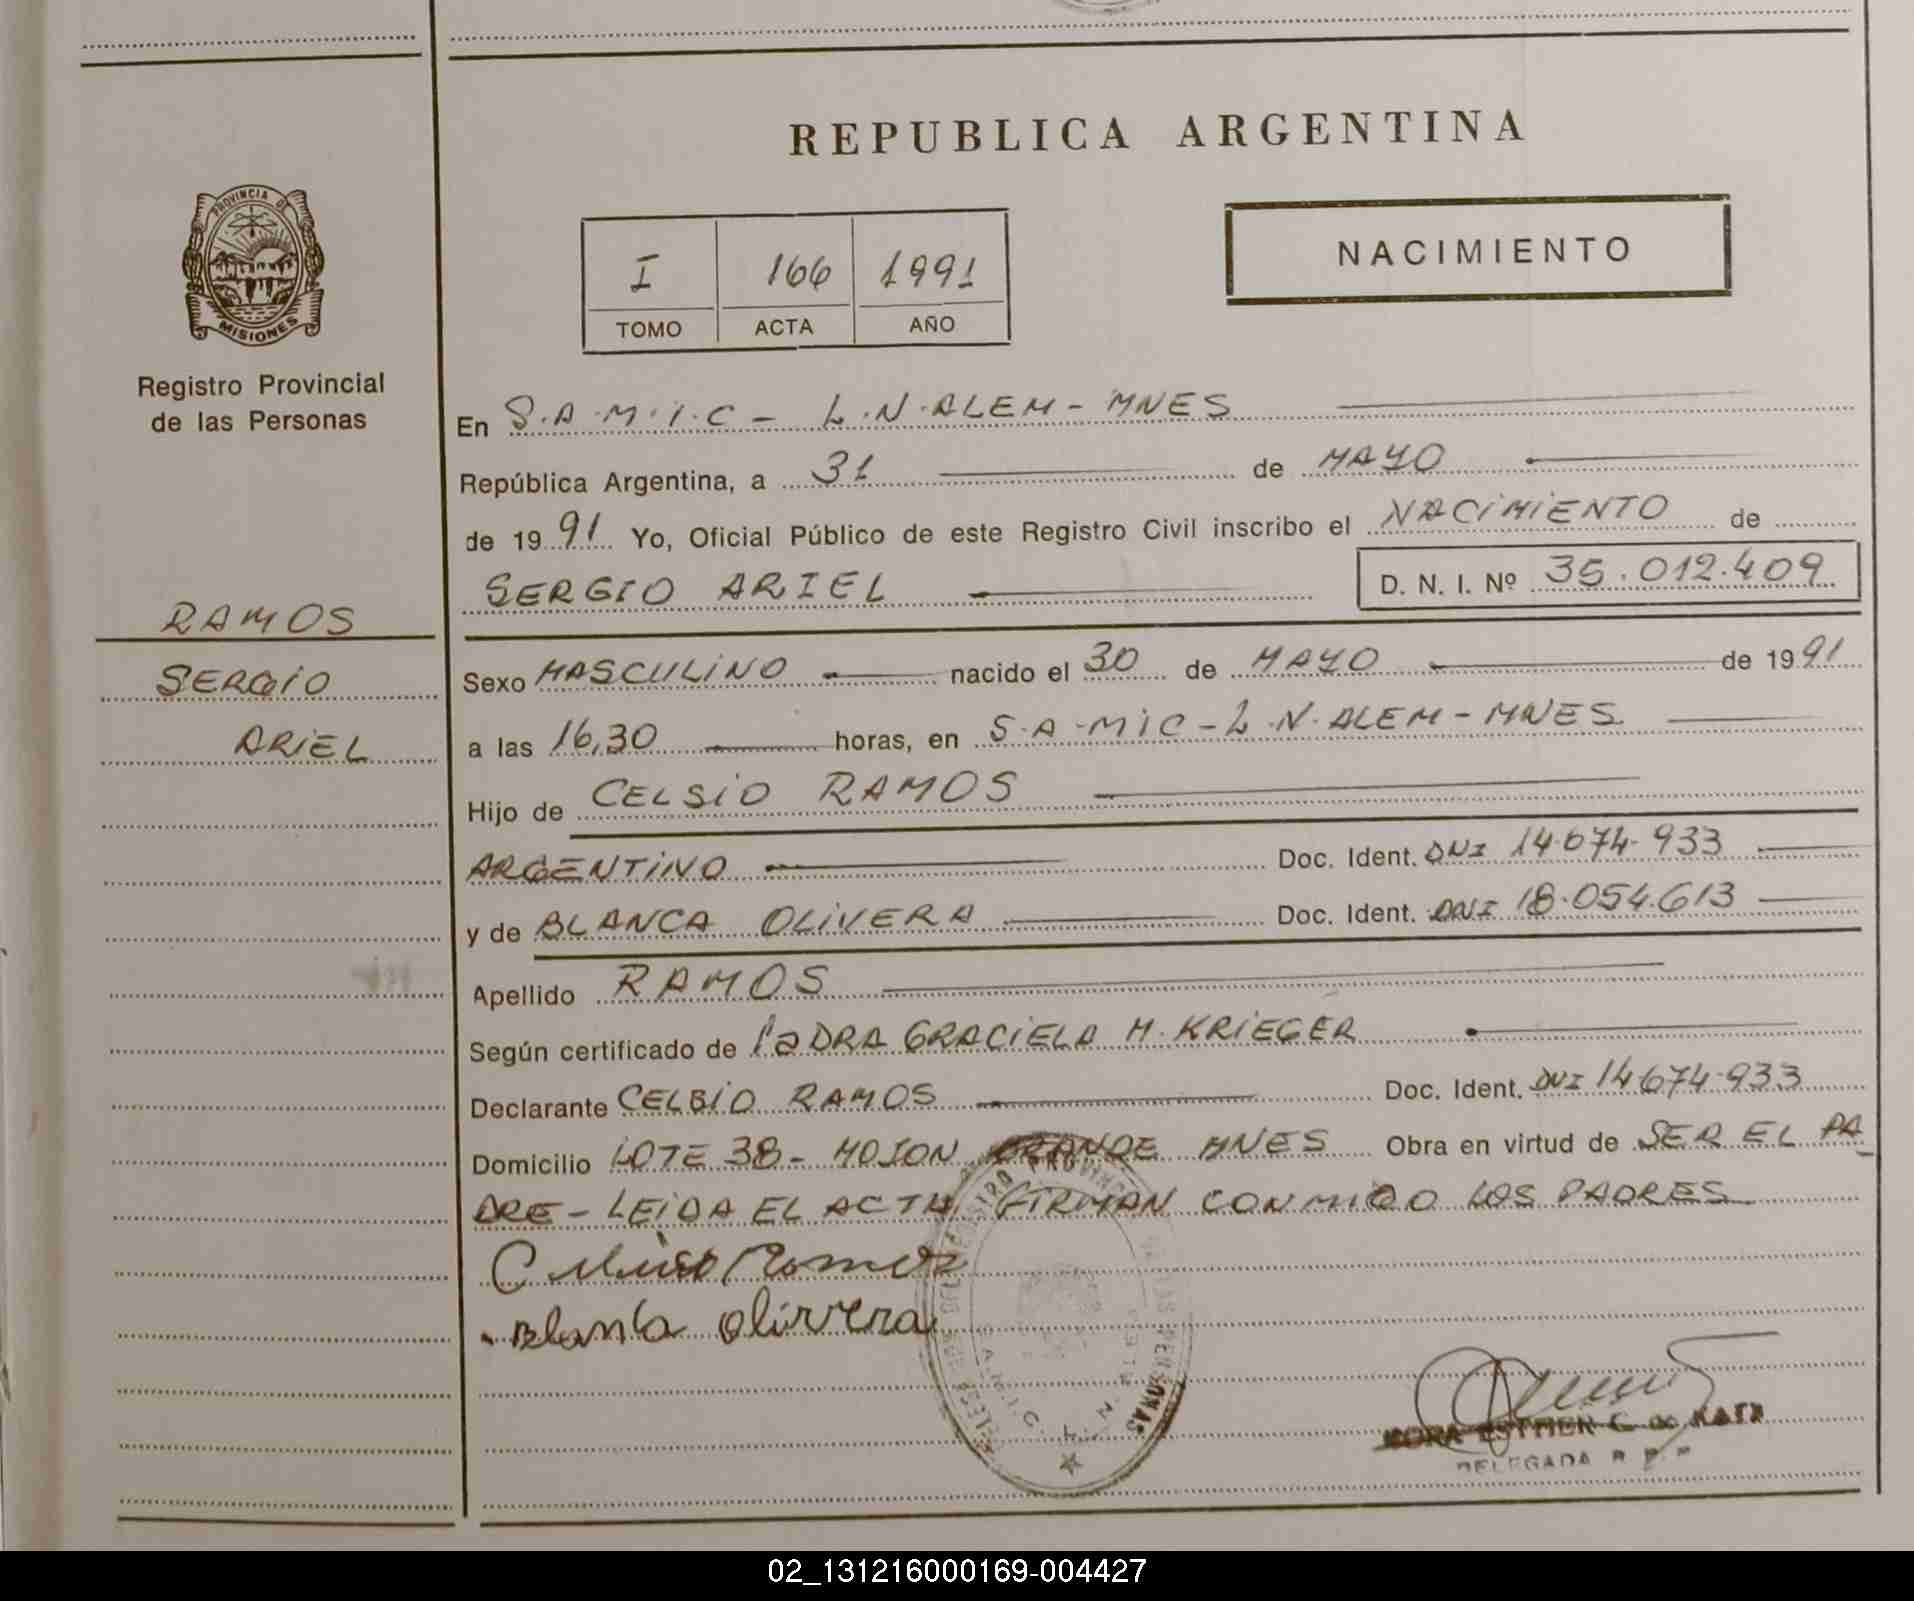 REPUBLICA ARGENTINA
PROVINCIA DE
MISIONES
Registro Provincial
de las Personas
I 166 1991
TOMO ACTA AÑO
NACIMIENTO
En S.A.M.I.C - L.N.ALEM - MNES
República Argentina, a 31 de MAYO
de 1991 Yo, Oficial Público de este Registro Civil inscribo el NACIMIENTO de
SERGIO ARIEL D. N. I. Nº 35.012.409
RAMOS
SERGIO
ARIEL
Sexo MASCULINO nacido el 30 de MAYO de 1991
a las 16,30 horas, en S.A.MIC - L.N.ALEM - MNES
Hijo de CELSIO RAMOS
ARGENTINO Doc. Ident. DNI 14.674.933
y de BLANCA OLIVERA Doc. Ident. DNI 18.054.613
Apellido RAMOS
Según certificado de la DRA GRACIELA M. KRIEGER
Declarante CELSIO RAMOS Doc. Ident. DNI 14674.933
Domicilio LOTE 38 - MOJON GRANDE MNES Obra en virtud de SER EL PA
DRE - LEIDA EL ACTA FIRMAN CONMIGO LOS PADRES
Ramos
Blanca Olivera
ESTHER C. de
DELEGADA R. P. P
S.A.M.I.C. L.N.
02_131216000169-004427